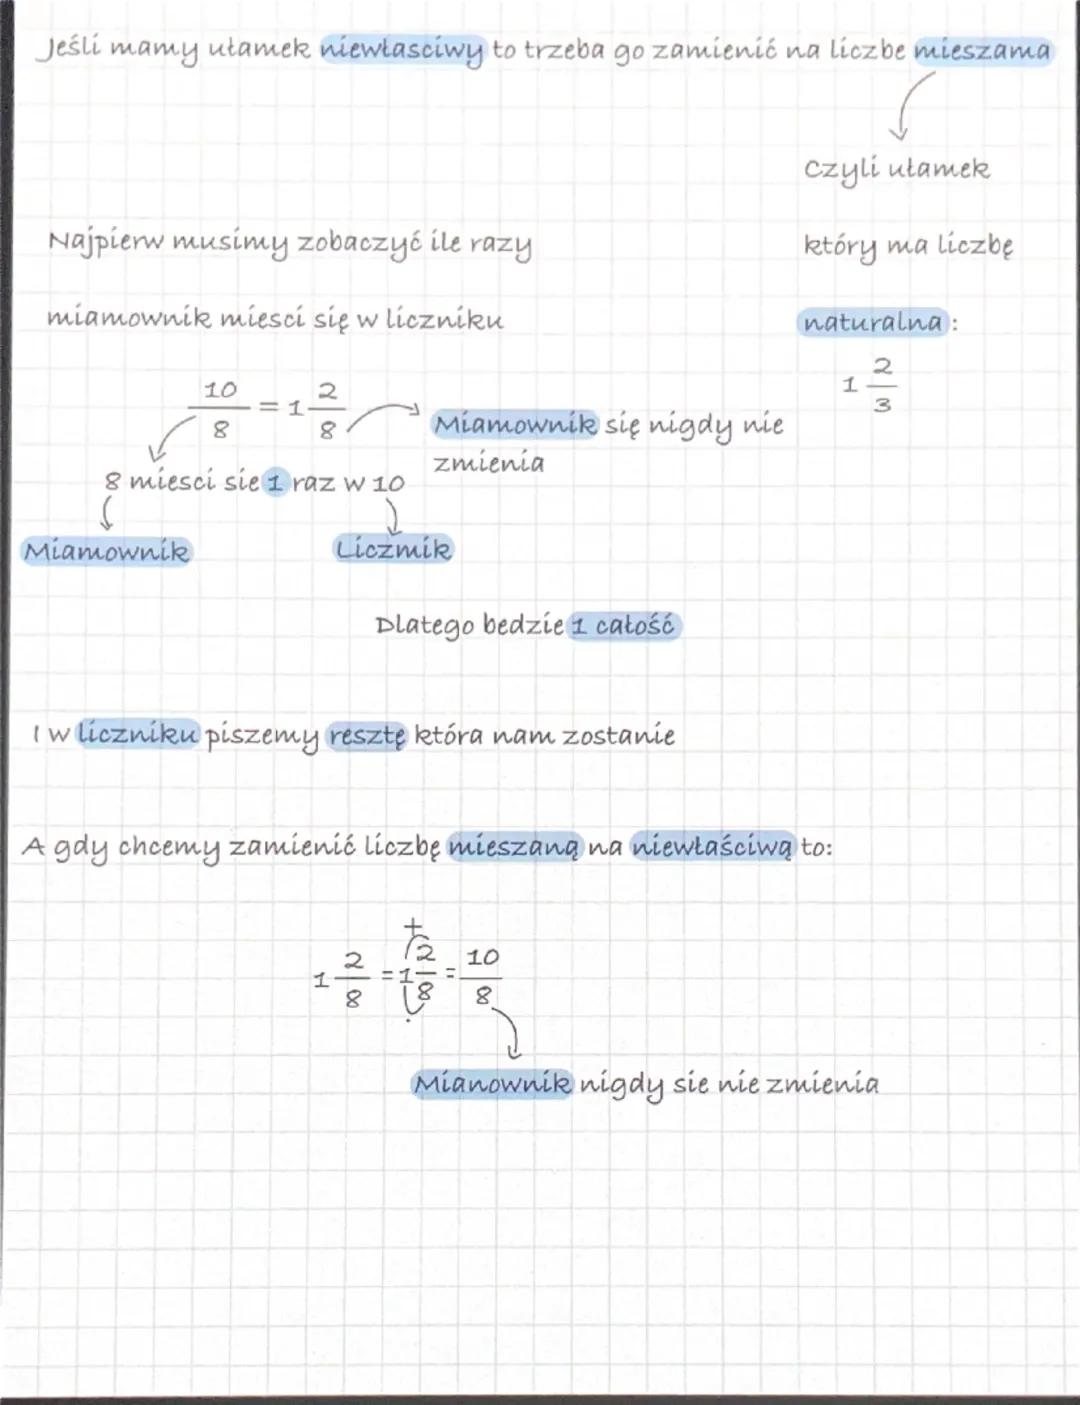 Jeśli mamy ułamek niewłasciwy to trzeba go zamienić na liczbe mieszama
Czyli ułamek
który ma liczbę
naturalna:
1 2/3
Najpierw musimy zobaczyć ile razy
miamownik miesci się w liczniku
10/8 = 1 2/8
Miamownik się nigdy nie
zmienia
8 miesci sie 1 raz w 10
Miamownik
Liczmik
Dlatego bedzie 1 całość
I w liczniku piszemy resztę która nam zostanie
A gdy chcemy zamienić liczbę mieszaną na niewłaściwą to:
+
1 2/8 = 1 2/8 = 10/8
·
Mianownik nigdy sie nie zmienia